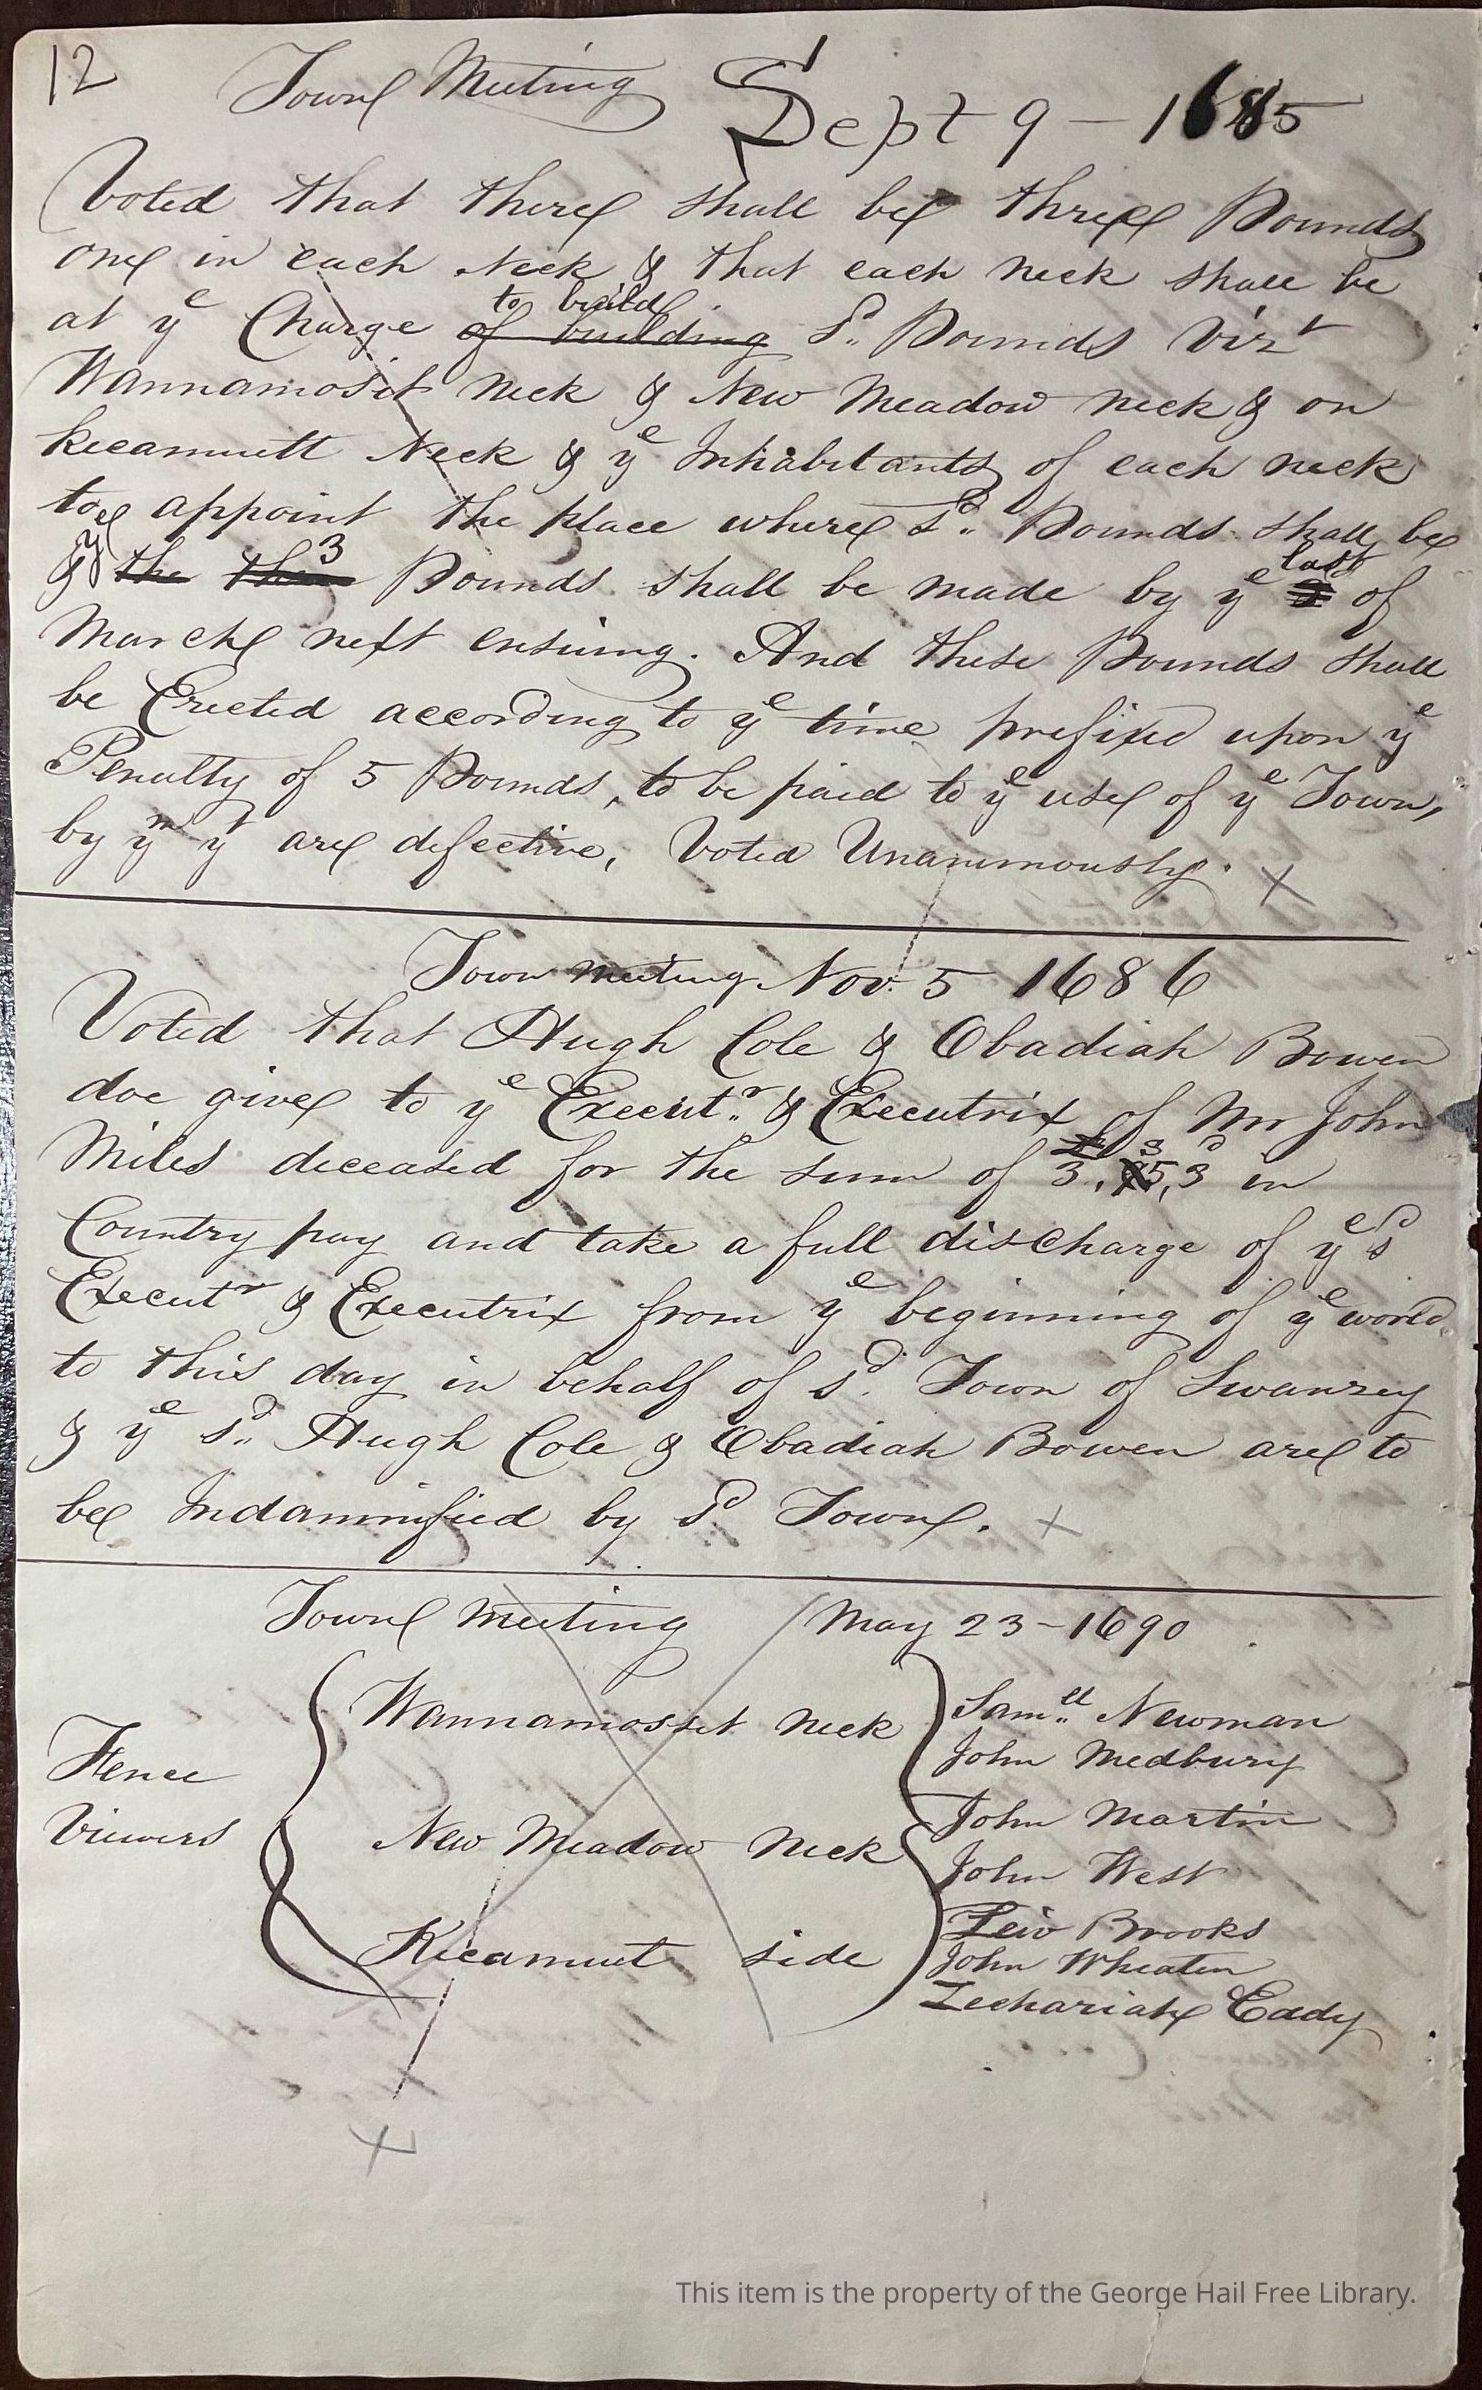 12 Towne Meeting Sept 9 - 1685
Voted that there shall bee three Pounds
one in each Neck & that each neck shall be
to build
at ye Charge of building sd. Pounds Vizt
Wannamosit neck & New Meadow neck & on
Kecamutt Neck & ye Inhabitants of each neck
toe appoint the place where sd. Pounds shall bee
& ye the the 3 Pounds shall be made by ye last of
Marche next ensuing. And these Pounds shall
be Erected according to ye time prefixed upon ye
Penulty of 5 Pounds, to be paid to ye use of ye Town,
by ym yt are defective, Voted Unanimously. X
Town meeting Nov. 5 1686
Voted that Hugh Cole & Obadiah Bowen
doe give to ye Executr. & Executrix of Mr John
Miles deceased for the sum of 3, 5s, 3d in
Country pay and take a full discharge of ye sd
Executr & Executrix from ye beginning of ye world
to this day in behalf of sd. Town of Swanzey
& ye sd. Hugh Cole & Obadiah Bowen are to
bee Indamnified by sd Towne. X
Towne Meeting May 23 - 1690
Fence Viewers
Wannamosset neck
Samll. Newman
John Medbury
New Meadow neck
John Martin
John West
Kecamuet side
Leiv Brooks
John Wheaten
Zechariah Eady
X
This item is the property of the George Hail Free Library.